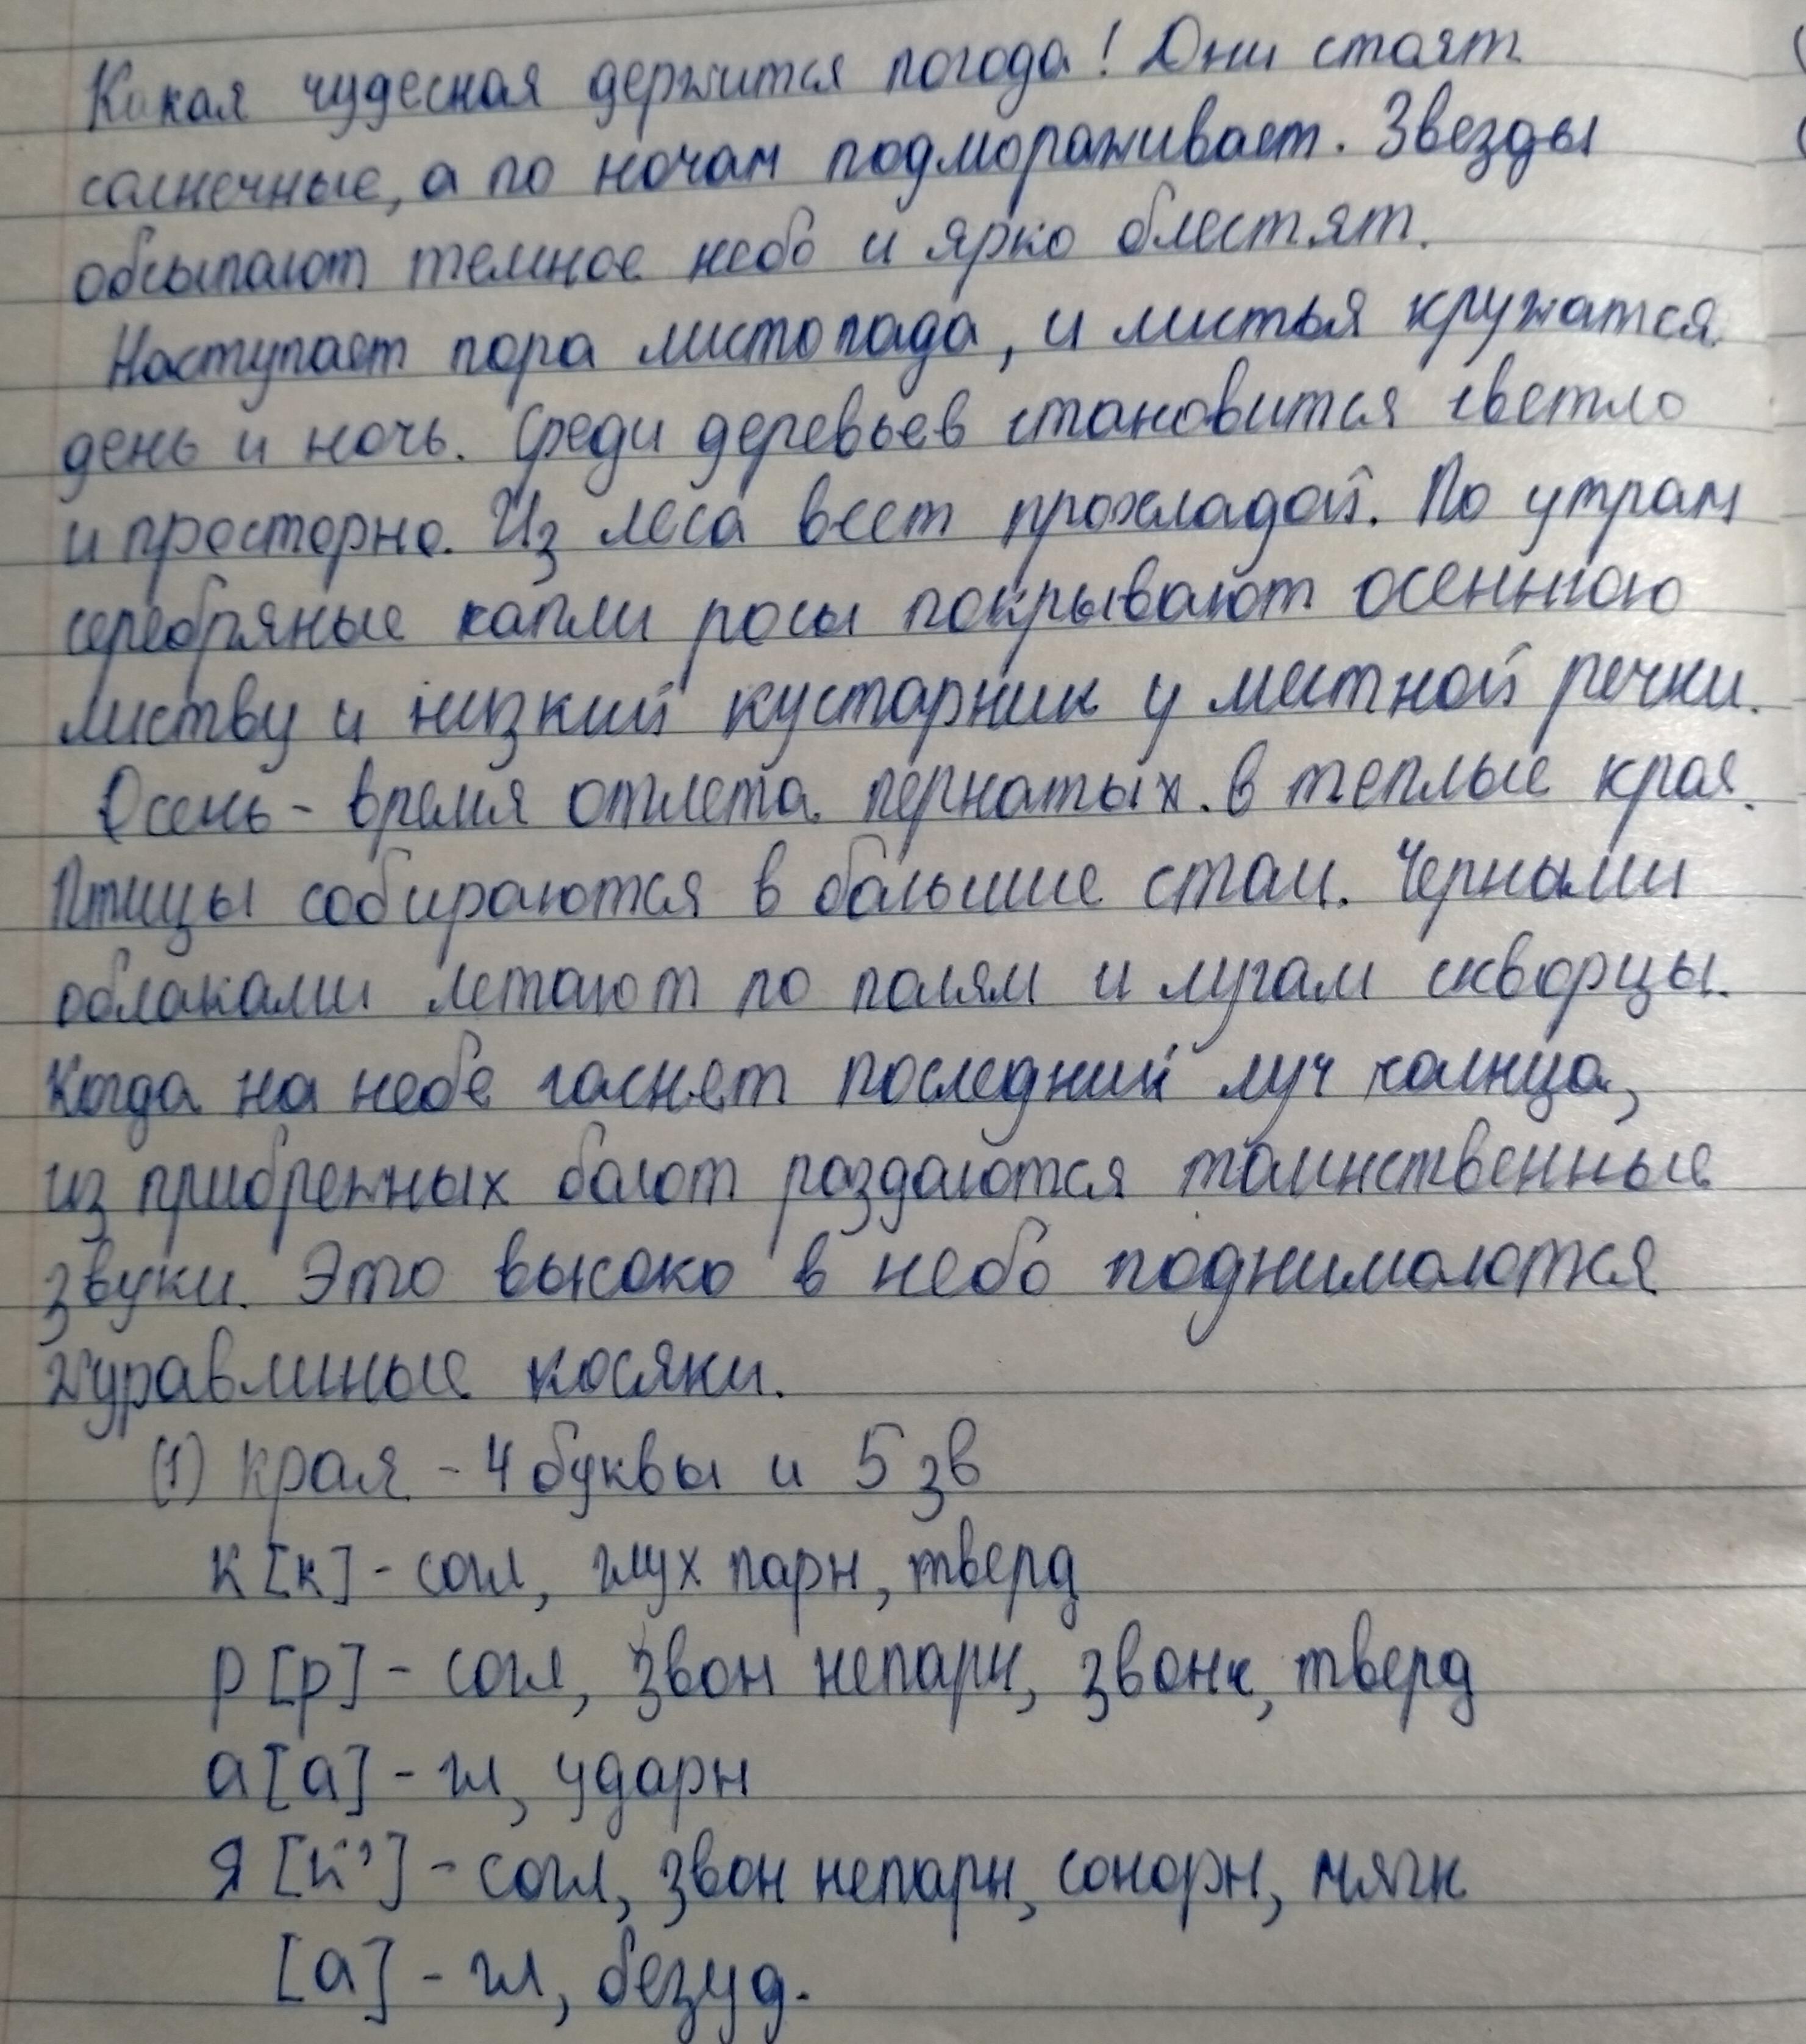 Какая чудесная держится погода! Дни стоят
солнечные, а по ночам подмораживает. Звезды
обсыпают темное небо и ярко блестят.
Наступает пора листопада, и листья кружатся
день и ночь. Среди деревьев становится светло
и просторно. Из леса веет прохладой. По утрам
серебряные капли росы покрывают осеннюю
листву и низкий кустарник у местной речки.
Осень - время отлета пернатых в теплые края.
Птицы собираются в большие стаи. Черными
облаками летают по полям и лугам скворцы.
Когда на небе гаснет последний луч солнца,
из прибрежных болот раздаются таинственные
звуки. Это высоко в небо поднимаются
журавлиные косяки.
(1) края - 4 буквы и 5 зв
к [к] - согл, глух парн, тверд
р [р] - согл, звон непарн, звонк, тверд
а [а] - гл, ударн
я [й'] - согл, звон непарн, сонорн, мягк
[а] - гл, безуд.